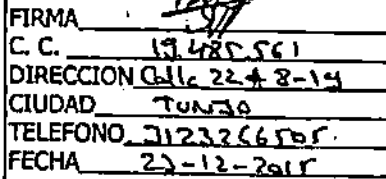 FIRMA
C. C. 19.485.561
DIRECCION Calle 22 # 8-14
CIUDAD TUNJA
TELEFONO 3123266505.
FECHA 23-12-2015